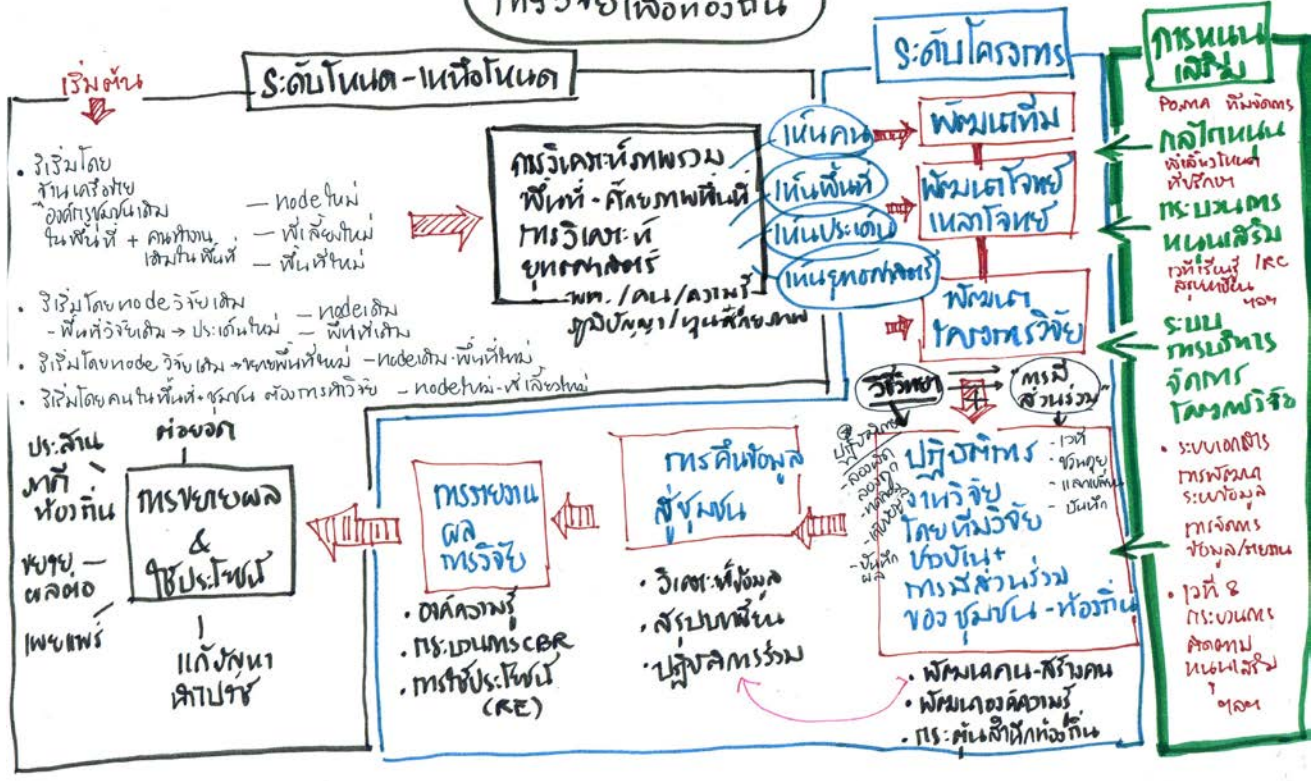 การวิจัยเพื่อท้องถิ่น
เริ่มต้น
ระดับโหนด-เหนือโหนด
• ริเริ่มโดย
ฐานเครือข่าย
องค์กรชุมชนเดิม
ในพื้นที่ + คนทำงาน
เดิมในพื้นที่
— nodeใหม่
— พี่เลี้ยงใหม่
— พื้นที่ใหม่
• ริเริ่มโดยnodeวิจัยเดิม — nodeเดิม
- พื้นที่วิจัยเดิม → ประเด็นใหม่ — พื้นที่เดิม
• ริเริ่มโดยnode วิจัยเดิม → ขยายพื้นที่ใหม่ - nodeเดิม-พื้นที่ใหม่
• ริเริ่มโดยคนในพื้นที่+ชุมชน ต้องการทำวิจัย - nodeใหม่-พี่เลี้ยงใหม่
การวิเคราะห์ภาพรวม
พื้นที่ - ศักยภาพพื้นที่
การวิเคราะห์
ยุทธศาสตร์
พท./คน/ความรู้
ภูมิปัญญา/ทุนศักยภาพ
เห็นคน
เห็นพื้นที่
เห็นประเด็น
เห็นยุทธศาสตร์
ระดับโครงการ
พัฒนาทีม
พัฒนาโจทย์
เหลาโจทย์
พัฒนา
โครงการวิจัย
วิธีวิทยา
"การมี
ส่วนร่วม"
ปฏิบัติการ
- ลองผิด
ลองถูก
- บันทึก
ผล
ปฏิบัติการ
งานวิจัย
โดยทีมวิจัย
ชาวบ้าน+
การมีส่วนร่วม
ของชุมชน-ท้องถิ่น
- เวที
- ชวนคุย
- แลกเปลี่ยน
- บันทึก
• พัฒนาคน-สร้างคน
• พัฒนาองค์ความรู้
• กระตุ้นสำนึกท้องถิ่น
การคืนข้อมูล
สู่ชุมชน
• วิเคราะห์ข้อมูล
• สรุปบทเรียน
• ปฏิบัติการร่วม
การรายงาน
ผล
การวิจัย
• องค์ความรู้
• กระบวนการCBR
• การใช้ประโยชน์
(RE)
ต่อยอด
การขยายผล
&
ใช้ประโยชน์
แก้ปัญหา
นำไปใช้
ประสาน
ภาคี
ท้องถิ่น
ขยาย —
ผลต่อ
เผยแพร่
การหนุน
เสริม
PO,MA ทีมจัดการ
กลไกหนุน
พี่เลี้ยงโหนด
ที่ปรึกษา
กระบวนการ
หนุนเสริม
เวทีเรียนรู้ /RE
สรุปบทเรียน
ฯลฯ
ระบบ
การบริหาร
จัดการ
โครงการวิจัย
• ระบบเอกสาร
การพัฒนา
ระบบข้อมูล
การจัดการ
ข้อมูล/รายงาน
• เวที 8
กระบวนการ
ติดตาม
หนุนเสริม
ฯลฯ